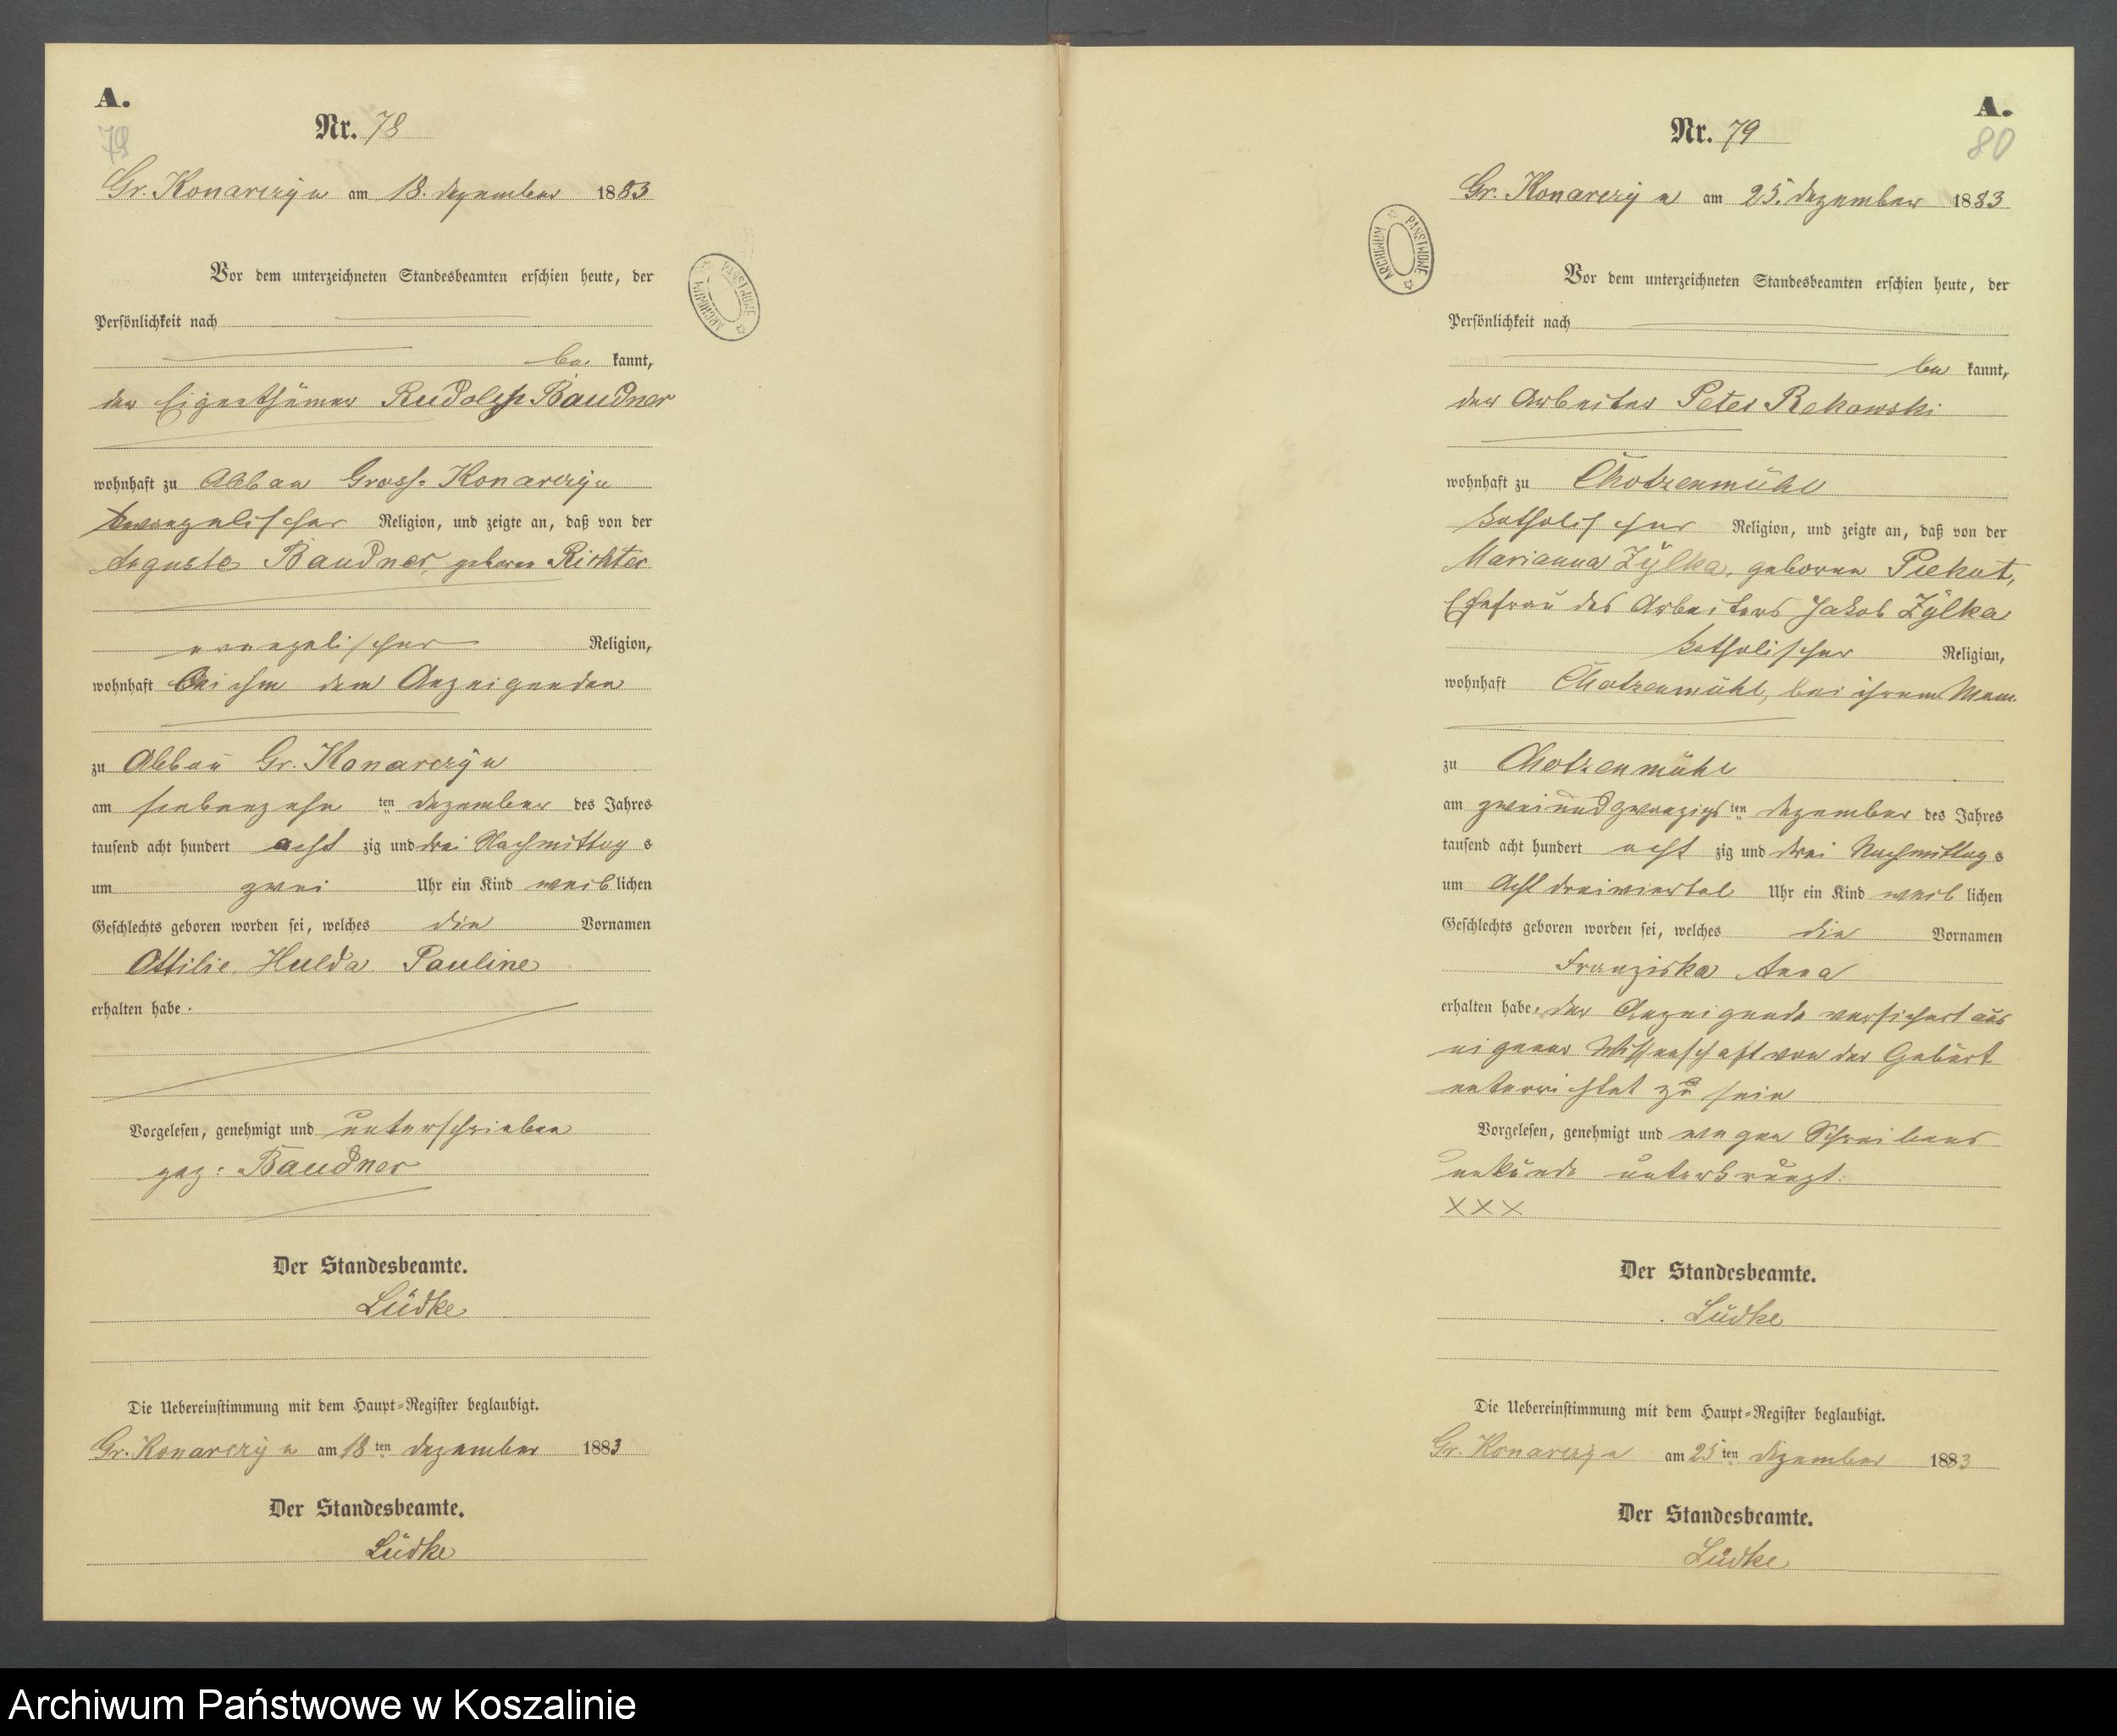 A.
79
Nr. 78
Gr. Konarczyn am 18. Dezember 1883
Vor dem unterzeichneten Standesbeamten erschien heute, der
Persönlichkeit nach
be kannt,
der Eigenthümer Rudolph Baudner
wohnhaft zu Abbau Gross-Konarczyn
evangelischer Religion, und zeigte an, daß von der
Auguste Baudner, geborene Richter
evangelischer Religion,
wohnhaft bei ihm dem Anzeigenden
zu Abbau Gr. Konarczyn
am siebenzehn ten Dezember des Jahres
tausend acht hundert acht zig und drei Nachmittag s
um zwei Uhr ein Kind weib lichen
Geschlechts geboren worden sei, welches die Vornamen
Ottilie Hulda Pauline
erhalten habe.
Vorgelesen, genehmigt und unterschrieben
gez: Baudner
Der Standesbeamte.
Lüdke
Die Uebereinstimmung mit dem Haupt-Register beglaubigt.
Gr. Konarczyn am 18 ten Dezember 1883
Der Standesbeamte.
Lüdke
A.
80
Nr. 79
Gr. Konarczyn am 25. Dezember 1883
ARCHIWUM PAŃSTWOWE
Vor dem unterzeichneten Standesbeamten erschien heute, der
Persönlichkeit nach
be kannt,
der Arbeiter Peter Rekowski
wohnhaft zu Chotzenmühl
katholischer Religion, und zeigte an, daß von der
Marianna Zÿlka, geborene Piekut,
Ehefrau des Arbeiters Jakob Zÿlka
katholischer Religion,
wohnhaft Chotzenmühl, bei ihrem Mann
zu Chotzenmühl
am zweiundzwanzigs ten Dezember des Jahres
tausend acht hundert acht zig und drei Nachmittag s
um Acht dreiviertel Uhr ein Kind weib lichen
Geschlechts geboren worden sei, welches die Vornamen
Franziska Anna
erhalten habe. Der Anzeigende versichert aus
eigener Wissenschaft von der Geburt
unterrichtet zu sein
Vorgelesen, genehmigt und wegen Schreibens
unkunde unterkreuzt.
XXX
Der Standesbeamte.
Lüdke
Die Uebereinstimmung mit dem Haupt-Register beglaubigt.
Gr. Konarczyn am 25 ten Dezember 1883
Der Standesbeamte.
Lüdke
Archiwum Państwowe w Koszalinie